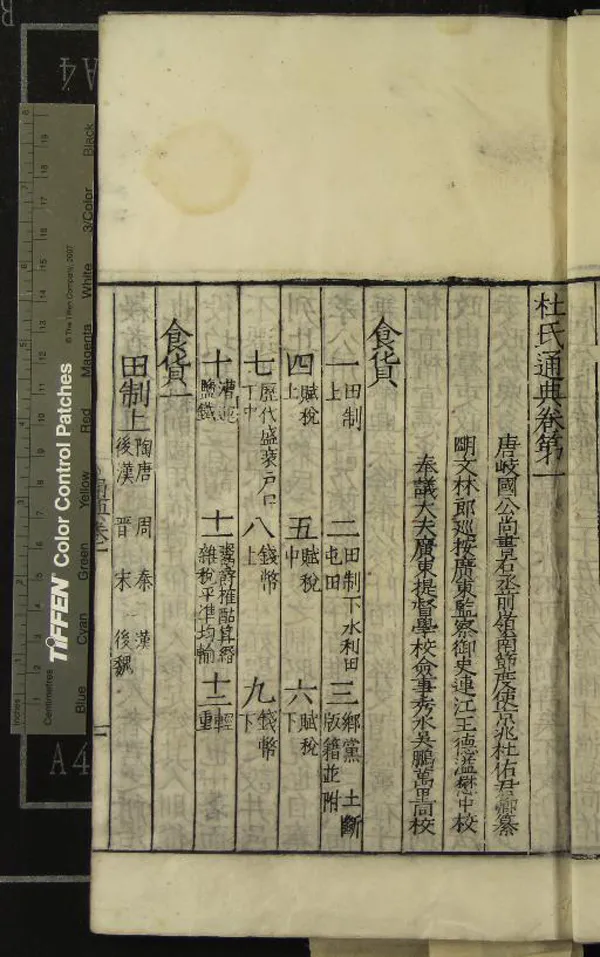 杜氏通典卷第一
唐岐國公尚書右丞前嶺南節度使京兆杜佑君卿纂
明文林郎巡按廣東監察御史連江王德溢懋中校
奉議大夫廣東提督學校僉事秀水吳鵬萬里同校
食貨
一 田制上 二 田制下水利田屯田 三 鄉黨 土斷版籍並附
四 賦稅上 五 賦稅中 六 賦稅下
七 歷代盛衰戶口丁中 八 錢幣上 九 錢幣下
十 漕運鹽鐵 十一 鬻爵榷酤算緡雜稅平準均輸 十二 輕重
食貨一
田制上 陶唐 周 秦 漢
後漢 晉 宋 後魏
A4
TIFFEN Color Control Patches
© The Tiffen Company, 2007
Blue Cyan Green Yellow Red Magenta White 3/Color Black
Inches
Centimetres
A4